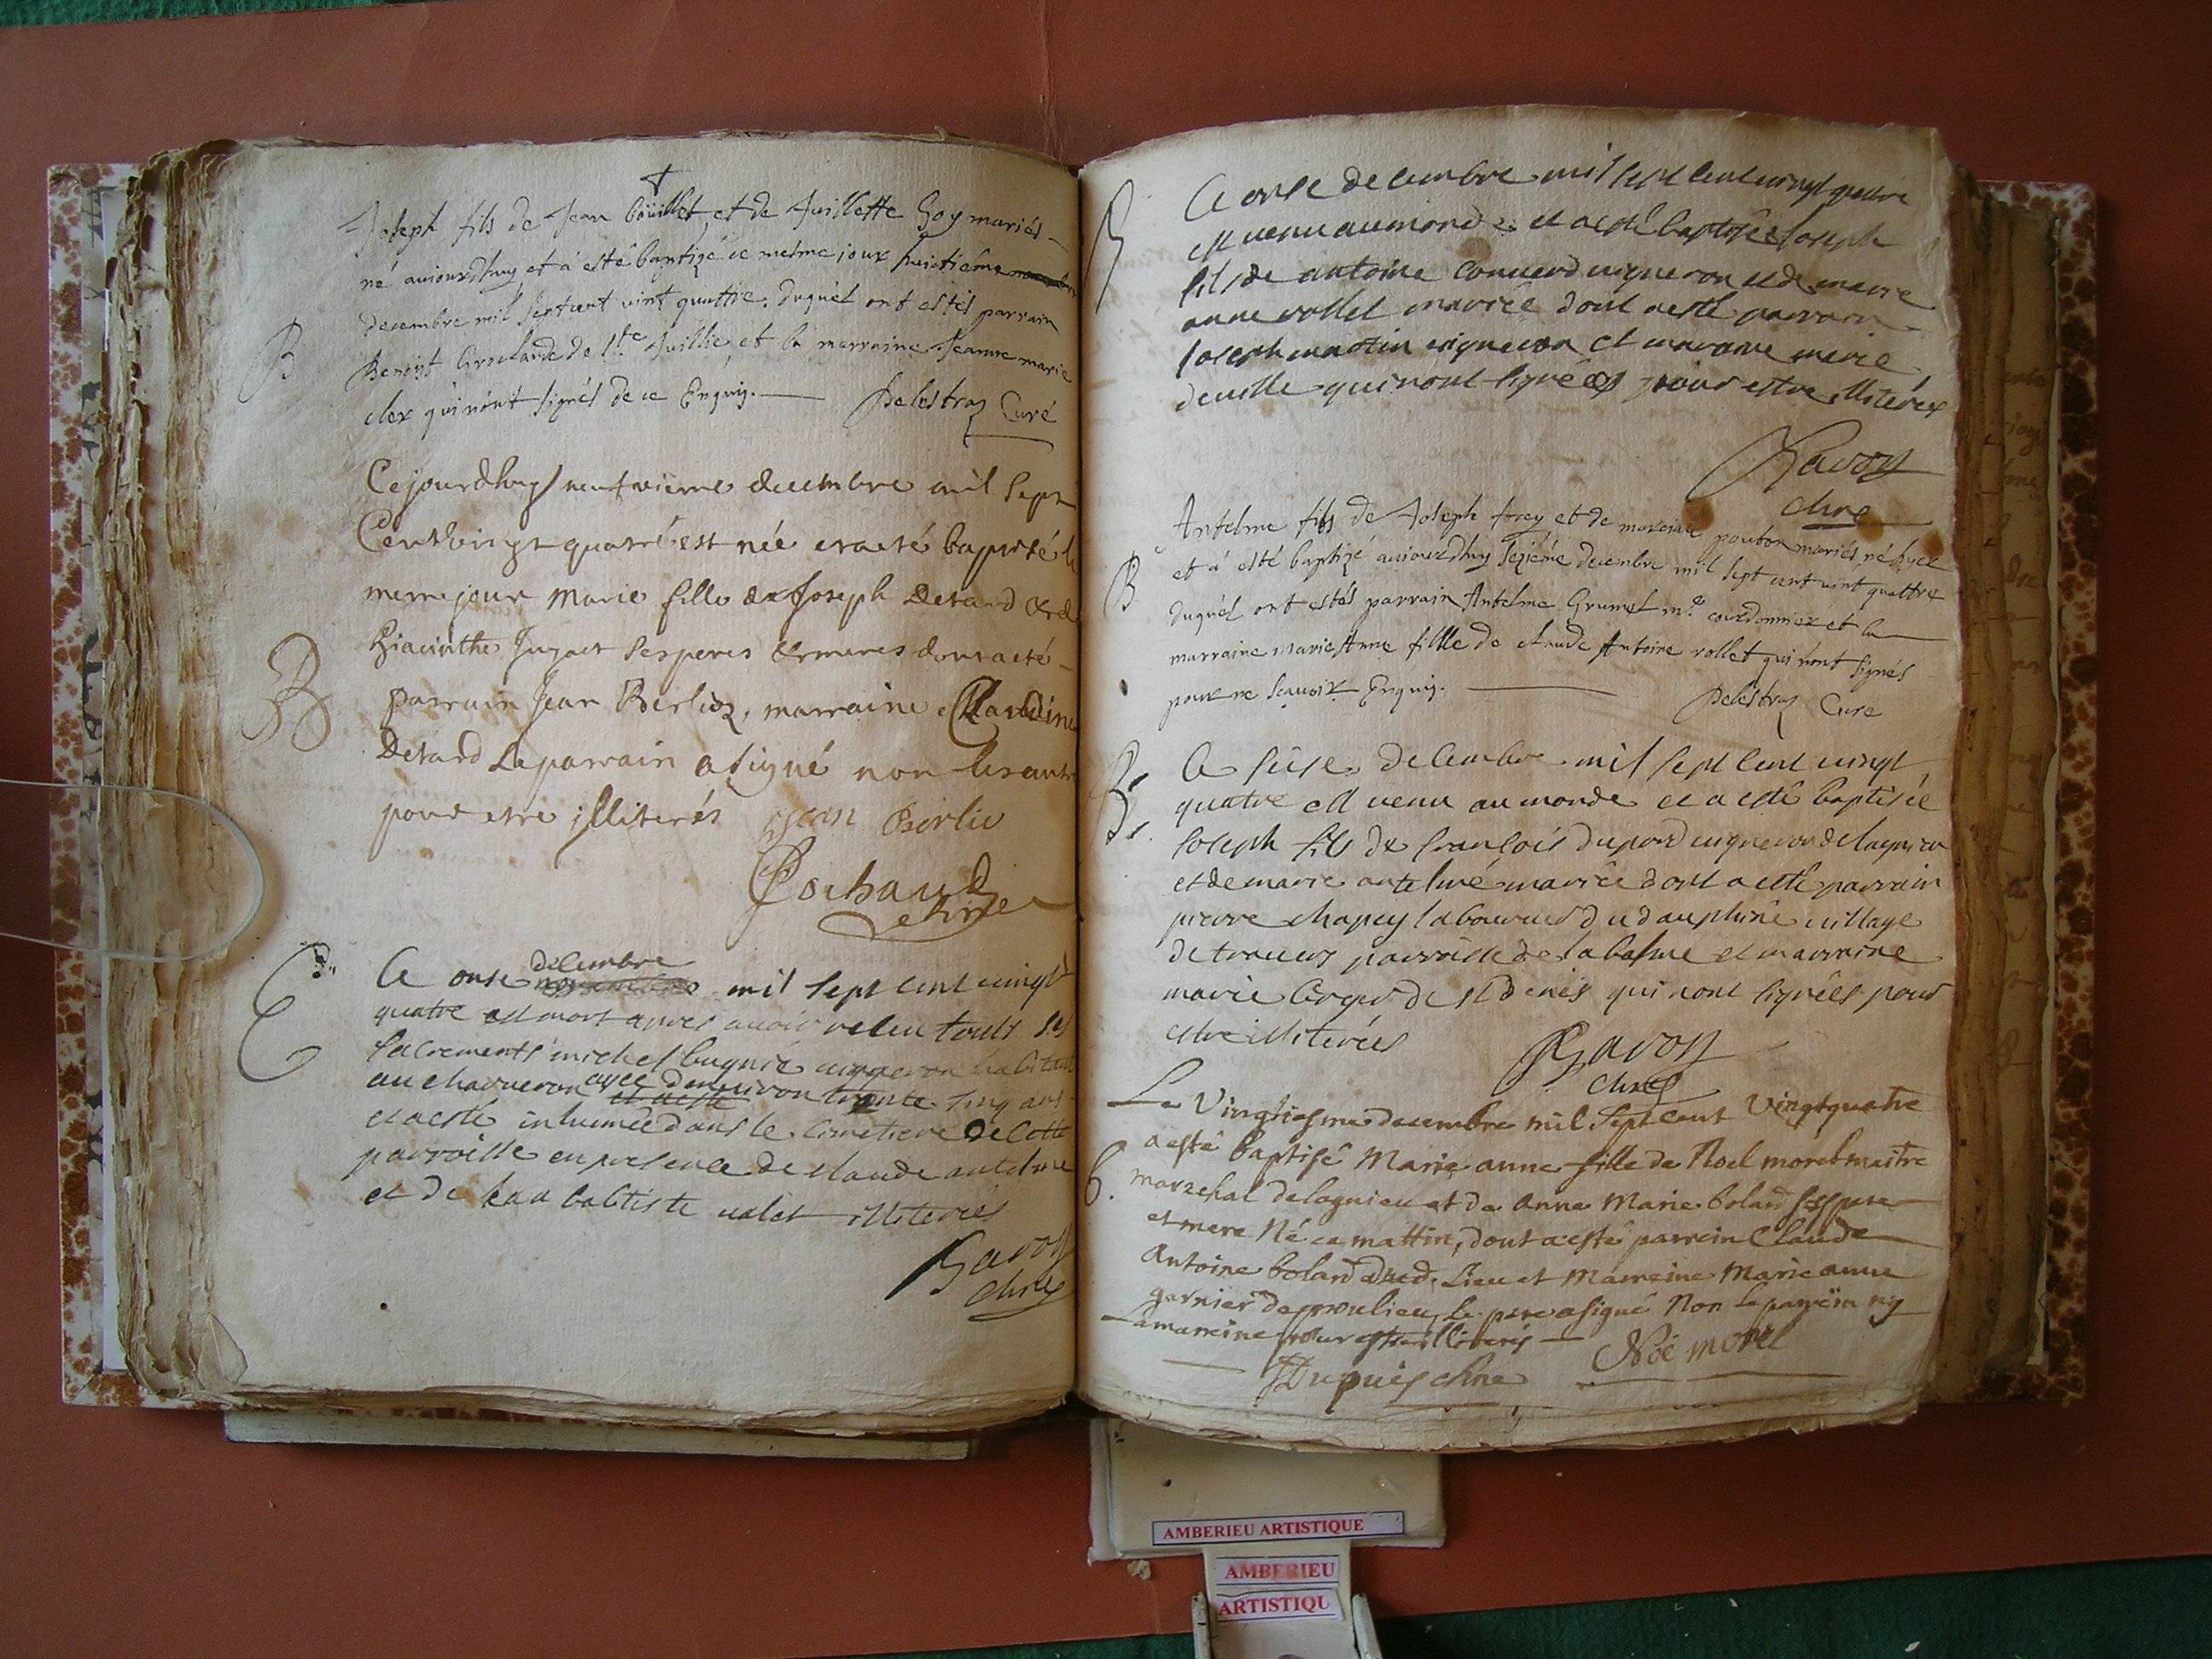 Joseph fils de Jean boüillet et de Juillette Goy mariés
né auiourdhuy et á esté baptizé ce mesme jour huictiéme
decembre mil septcent vint quattre. duquel ont estés parrain
Benoist de Ste Juillie et la marraine Jeanne marie
clex qui nónt signés de ce Enquis. Delestraz Curé
B
Cejourdhuy neufvieme decembre mil sept
Cent vingt quatre est née et acté baptisé le
meme jour Marie fille de Joseph Detard et de
hiacinthe Jugact ses peres et meres dont acté
B
parrain Jean Berlioz, marraine Claudine
Detard Le parrain a signé non les autre
pour etre illiterés Jean Berlio
Cochaud
Ce onse decembre mil sept cent vingt
quatre est mort apres avoir receu touts ses
sacrements michel bugnie vigneron habitant
au charveron agee denviron trente sinq ans
et a esté inhumée dans le cimetiere de cette
parroisse en presence de claude antelme
et de baptiste valet illiterés
Savoy
Ce onse decembre mil sept cent vingt quatre
est venu au monde et a esté baptisée Joseph
fils de antoine convard vigneron et de marie
anne rollet mariée dont a esté parrain
Joseph martin vigneron et maraine marie
deville qui nont signées pour estre illiterés
Savoy
Antelme fils de Joseph frey et de marciane ponton mariés né hyer
et á esté baptizé auiourdhuy seziéme decembre mil sept cent vint quattre
B
duquel ont estés parrain Antelme Grumel me courdonnier et la
marraine marie Anne fille de claude Antoine rollet qui nont signés
pour ne scavoir Enquis. Delestraz Cure
Ce seise decembre mil sept cent vingt
quatre est venu au monde et a esté baptisée
Joseph fils de francois dupond vigneron de lagnieu
et de marie antelme mariée dont a esté parrain
pierre chapey laboureur du dauphiné village
de travers parroisse de la balme et marraine
marie de st denis qui nont signées pour
estre illiterés Savoy
Le Vingtiesme decembre mil Sept cent Vingt quatre
a esté baptisé Marie anne fille de Noel morel maitre
marechal de lagnieu et de anne Marie bolard ses pere
et mere Né ce mattin, dont a esté parrein Claude
Antoine bolard dud. Lieu et Marreine Marie anne
garnier de proulieu, le pere a signé Non Le parrein ny
La marreine pour estre illiterés Noë morel
Dupuis
AMBERIEU ARTISTIQUE
AMBERIEU
ARTISTIQU